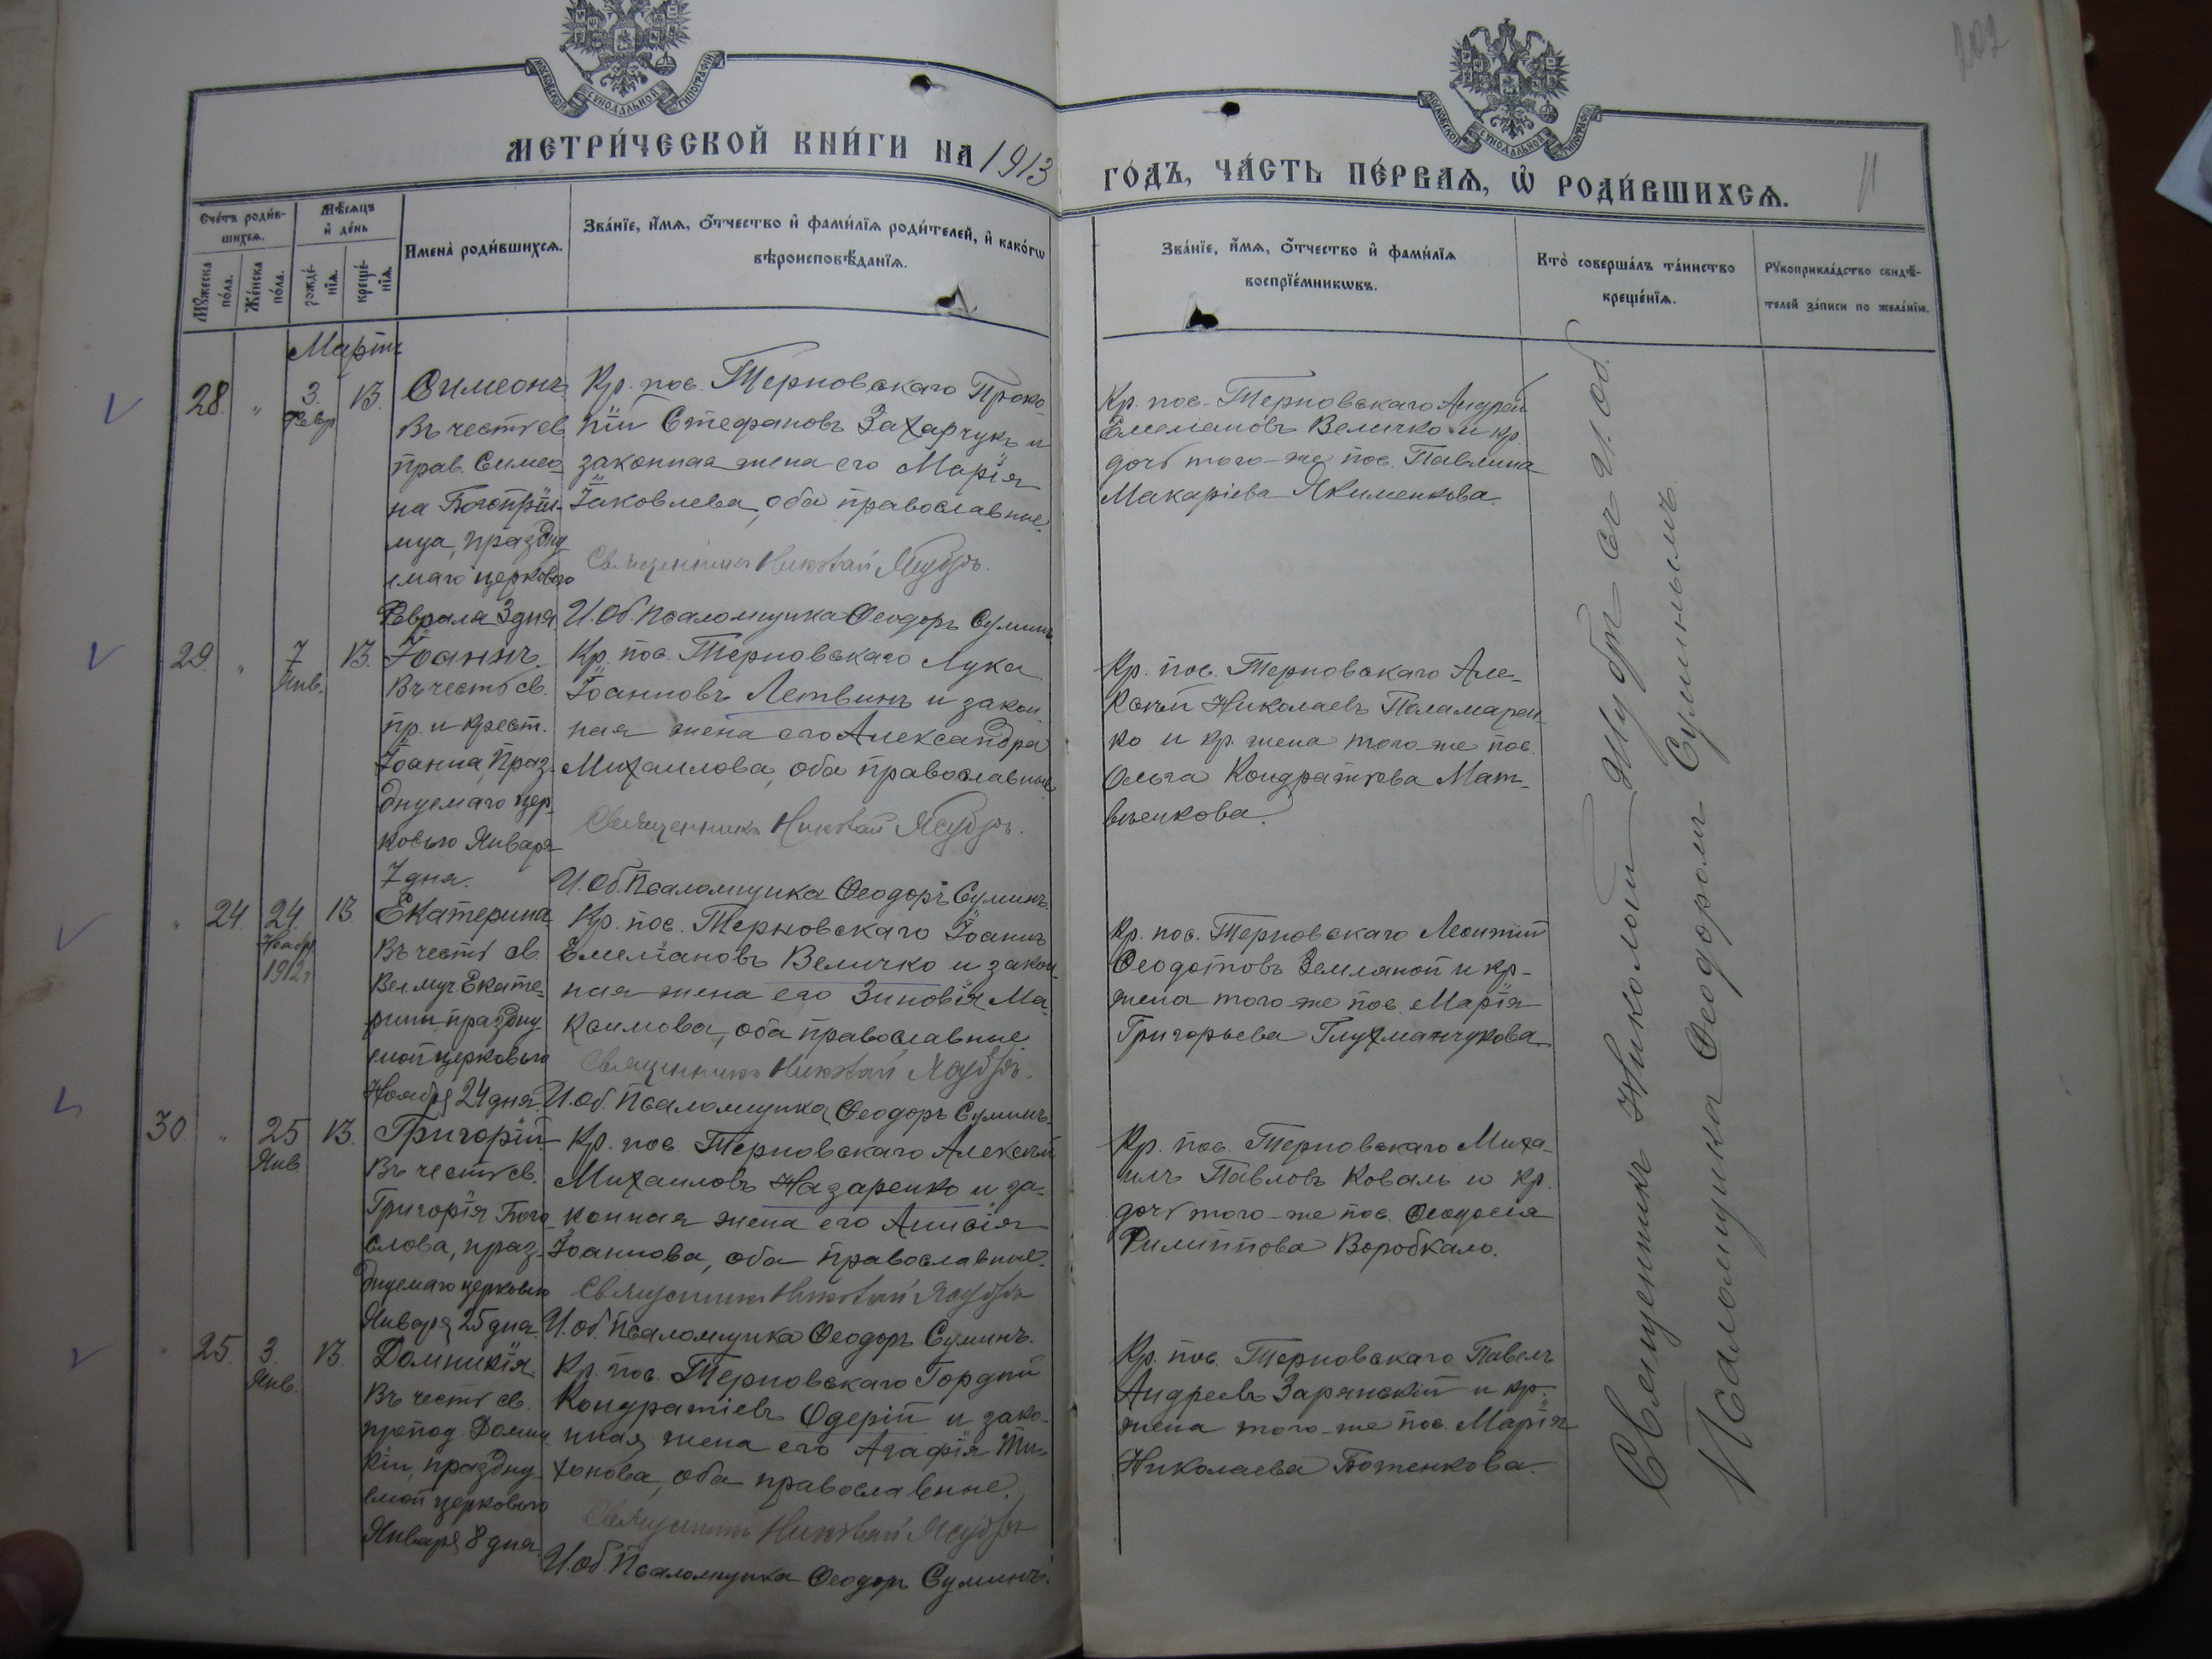 202
11
МОСКОВСКОЙ СѴНОДАЛЬНОЙ ТИПОГРАФІИ
МОСКОВСКОЙ СѴНОДАЛЬНОЙ ТИПОГРАФІИ
МЕТРИ́ЧЕСКОЙ КНИ́ГИ НА 1913
ГО́ДЪ, ЧА́СТЬ ПЕ́РВАѦ, Ѽ РОДИ́ВШИХСѦ.
Сче́тъ роди́в-
шихсѧ.
Мꙋ́жеска
по́ла.
Же́нска
по́ла.
Мѣ́сѧцъ
и҆ де́нь
рожде́-
нїѧ.
креще́-
нїѧ.
Имена̀ роди́вшихсѧ.
Зва́нїе, и҆́мѧ, ѻ҆́тчество и҆ фами́лїѧ роди́телей, и҆ како́гѡ
вѣроисповѣ́данїѧ.
Зва́нїе, и҆́мѧ, ѻ҆́тчество и҆ фами́лїѧ
воспрїе́мникѡвъ.
Кто̀ соверша́лъ та́инство
креще́нїѧ.
Рꙋкоприкла́дство свидѣ́-
телей за́писи по жела́нїю.
Мартъ
28. " 3. Февр 13.
Симеонъ.
Въ честь св.
прав. Симео-
на Богопріи-
мца, праздну
емаго церковью
Февраля 3 дня
Кр. пос. Терновскаго Проко-
пій Стефановъ Захарчукъ и
законная жена его Марія
Іаковлева, оба православные.
Священникъ Николай Якубъ.
И. Об. Псаломщика Ѳеодоръ Суминъ
Кр. пос. Терновскаго Андрей
Емеліановъ Величко и кр.
дочь того-же пос. Павлина
Макаріева Якименкова.
29. " 7 Янв. 13.
Іоаннъ.
Въ честь св.
пр. и крест.
Іоанна, праз-
днуемаго цер-
ковью Января
7 дня.
Кр. пос. Терновскаго Лука
Іоанновъ Летвинъ и закон-
ная жена его Александра
Михаилова, оба православные
Священникъ Николай Якубъ.
И. Об. Псаломщика Ѳеодоръ Суминъ.
Кр. пос. Терновскаго Але-
ксѣй Николаевъ Паламарен-
ко и кр. жена того-же пос.
Ольга Кондратьева Мат-
вѣенкова.
" 24. 24. Ноябр 1912 г 13.
Екатерина
Въ честь св.
Вел. муч Екате-
рины, праздну
емой церковью
Ноября 24 дня.
Кр. пос. Терновскаго Іоаннъ
Емеліановъ Величко и закон-
ная жена его Зиновія Ма-
ксимова, оба православные.
Священникъ Николай Якубъ.
И. Об. Псаломщика Ѳеодоръ Суминъ.
Кр. пос. Терновскаго Леонтій
Ѳеодотовъ Земляной и кр-
жена того-же пос. Марія
Григорьева Глухманчукова.
30. " 25 Янв 13.
Григорій
Въ честь св.
Григорія Бого
слова, праз-
днуемаго церковью
Января 25 дня.
Кр. пос. Терновскаго Алексѣй
Михаиловъ Назаренко и за-
конная жена его Анисія
Іоаннова, оба православные.
Священникъ Николай Якубъ
И. об. Псаломщика Ѳеодоръ Суминъ.
Кр. пос. Терновскаго Миха-
илъ Павловъ Коваль и кр.
дочь того-же пос. Ѳеодосія
Филиппова Воробкало.
" 25. 3. Янв. 13.
Домникія
Въ честь св.
препод. Домни
кіи, праздну
емой церковью
Января 8 дня.
Кр. пос. Терновскаго Гордѣй
Кондратіевъ Одерій и зако-
нная жена его Агафія Ти-
хонова, оба православные.
Священникъ Николай Якубъ
И. Об. Псаломщика Ѳеодоръ Суминъ.
Кр. пос. Терновскаго Павелъ
Андреевъ Зарянскій и кр.
жена того-же пос. Марія
Николаева Боженкова.
Священникъ Николай Якубъ съ И. Об.
Псаломщика Ѳеодоромъ Суминымъ.